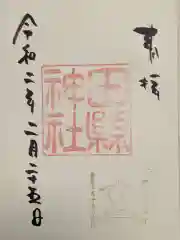 奉拝
玉縣神社
令和二年二月二十五日